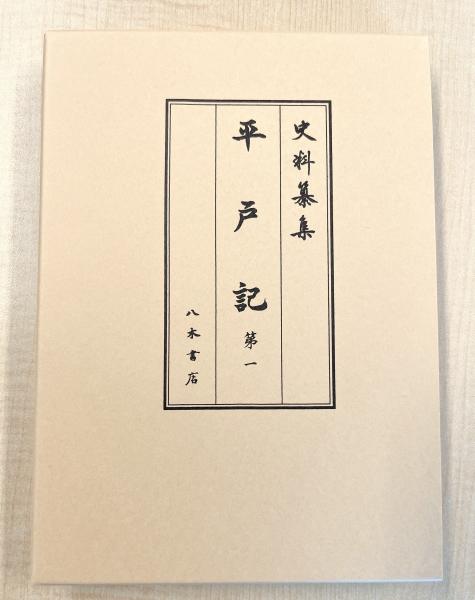 史料纂集
平戸記 第一
八木書店